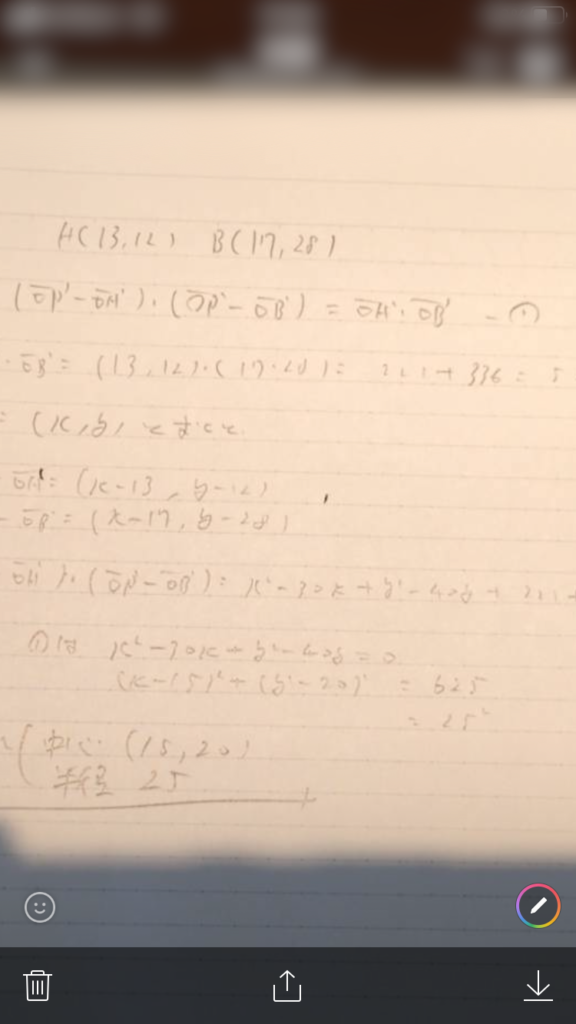 H(13,12) B(17,28)
(OP-OH)・(OP-OB) = OH・OB -①
・OB = (13,12)・(17,28) = 221+336 = 5
= (x,y)とすると
OH = (x-13, y-12)
- OB = (x-17, y-28)
OH)・(OP-OB) = x²-30x+y²-40y+221+
①は x²-30x+y²-40y=0
(x-15)²+(y-20)² = 625
= 25²
中心 (15,20)
半径 25